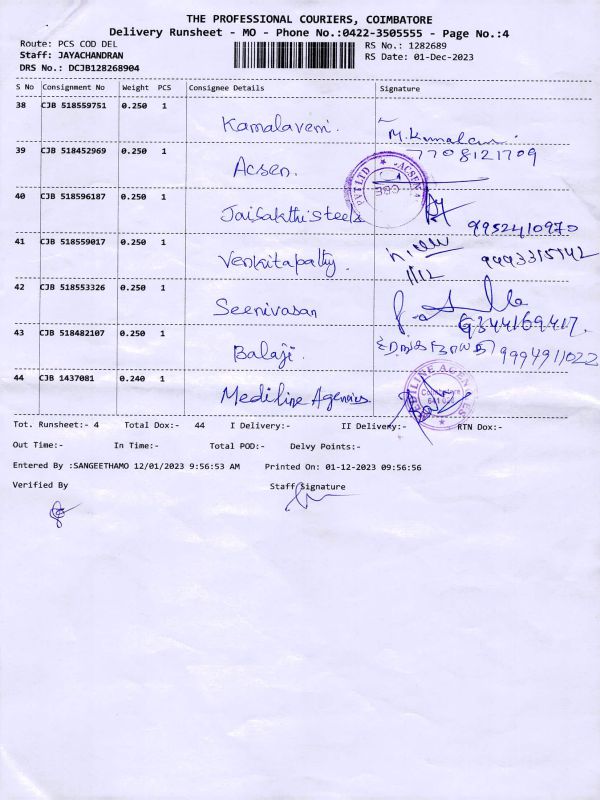 THE PROFESSIONAL COURIERS, COIMBATORE
Delivery Runsheet - MO - Phone No.:0422-3505555 - Page No.:4
Route: PCS COD DEL RS No.: 1282689
Staff: JAYACHANDRAN RS Date: 01-Dec-2023
DRS No.: DCJB128268904
S No Consignment No Weight PCS Consignee Details Signature
38 CJB 518559751 0.250 1 Kamalaveni.
7708121709
39 CJB 518452969 0.250 1 Acsen. ACSEN PVT LTD CBE
40 CJB 518596187 0.250 1 Jaisakthisteels 9952410970
41 CJB 518559017 0.250 1 Venkitapathy.
1/12
42 CJB 518553326 0.250 1 Seenivasan
9344169417.
43 CJB 518482107 0.250 1 Balaji. 9994911022
44 CJB 1437081 0.240 1 Mediline Agencies MEDILINE AGENCIES Coimbatore
Tot. Runsheet:- 4 Total Dox:- 44 I Delivery:- II Delivery:- RTN Dox:-
Out Time:- In Time:- Total POD:- Delvy Points:-
Entered By :SANGEETHAMO 12/01/2023 9:56:53 AM Printed On: 01-12-2023 09:56:56
Verified By Staff Signature